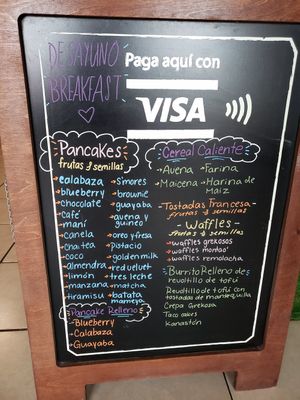 DESAYUNO
BREAKFAST
Paga aquí con
VISA
Pancakes
frutas y semillas
calabaza
blueberry
chocolate
café
maní
canela
chai tea
coco
almendra
limón
manzana
tiramisu
s'mores
brownie
guayaba
avena y
guineo
oreo y fresa
pistacio
golden milk
red velvet
tres leche
matcha
batata
mameya
Pancake Relleno
Blueberry
Calabaza
Guayaba
Cereal Caliente
Avena
Farina
Maicena
Harina de
Maíz
Tostadas Francesa
frutas y semillas
Waffles
frutas y semillas
waffles grekosos
waffles montao'
waffles remolacha
Burrito Relleno de
revoltillo de tofú
Revoltillo de tofú con
tostadas de mantequilla
Crepa Grekosa
Taco cakes
Kanastón